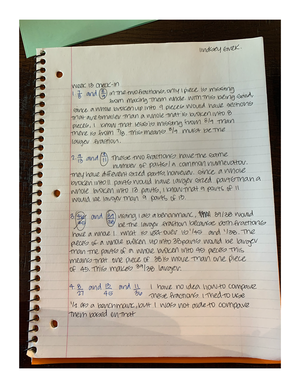 week 13 check-in
1. 7/8 and 8/9 in the two fractions only 1 piece is missing
from making them whole. With this being said,
since a whole broken up into 9 pieces would have sections
that are smaller than a whole that is broken into 8
pieces, I know that less is missing from 8/9 than
there is from 7/8. This means 8/9 must be the
larger fraction.
2. and These two fractions have the same
number of parts/a common numerator.
they have different sized parts however. since a whole
broken into 11 parts would have larger sized parts than a
whole broken into 13 parts, I know that 9 parts of 11
would be larger than 9 parts of 13.
3. and using 1 as a benchmark, 39/38 would
be the larger fraction because both fractions
have a whole 1. What is left over is 1/45 and 1/38. The
pieces of a whole broken up into 38 parts would be larger
than the parts of a whole broken into 45 parts. This
means that one piece of 38 is more than one piece
of 45. This makes 39/38 larger.
4. 8/27 and and I have no idea how to compare
these fractions. I tried to use
as a benchmark, but I was not able to compare
them based on that